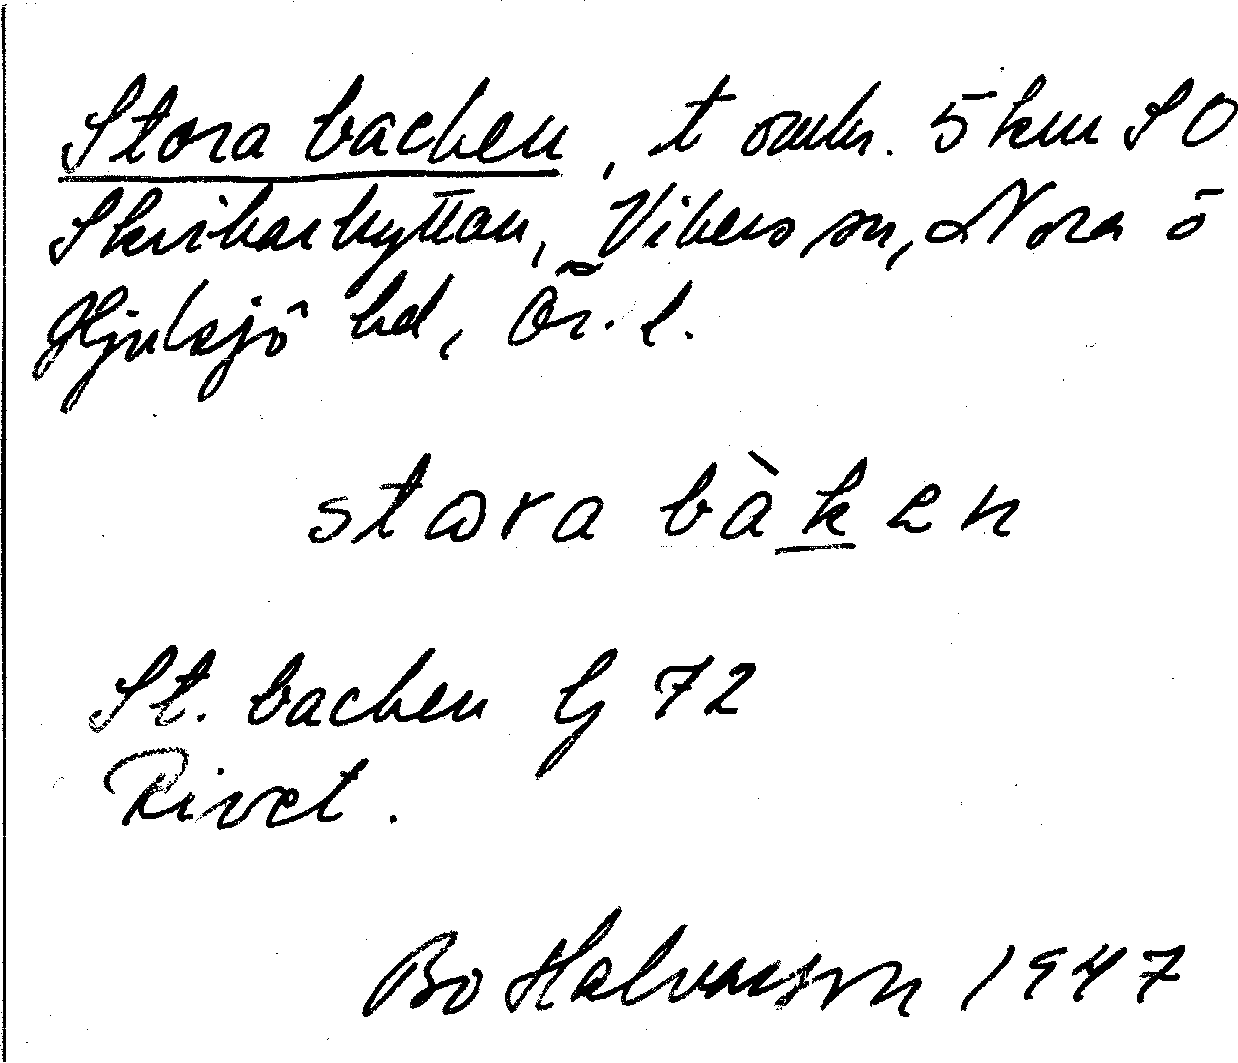 Stora backen, t omkr. 5 km SO
Skrikarhyttan, Vikers sn, Nora o
Hjulsjö bd, Ör. l.
stωra bàken
St. backen G 72
Rivet.
Bo Halvarsson 1947